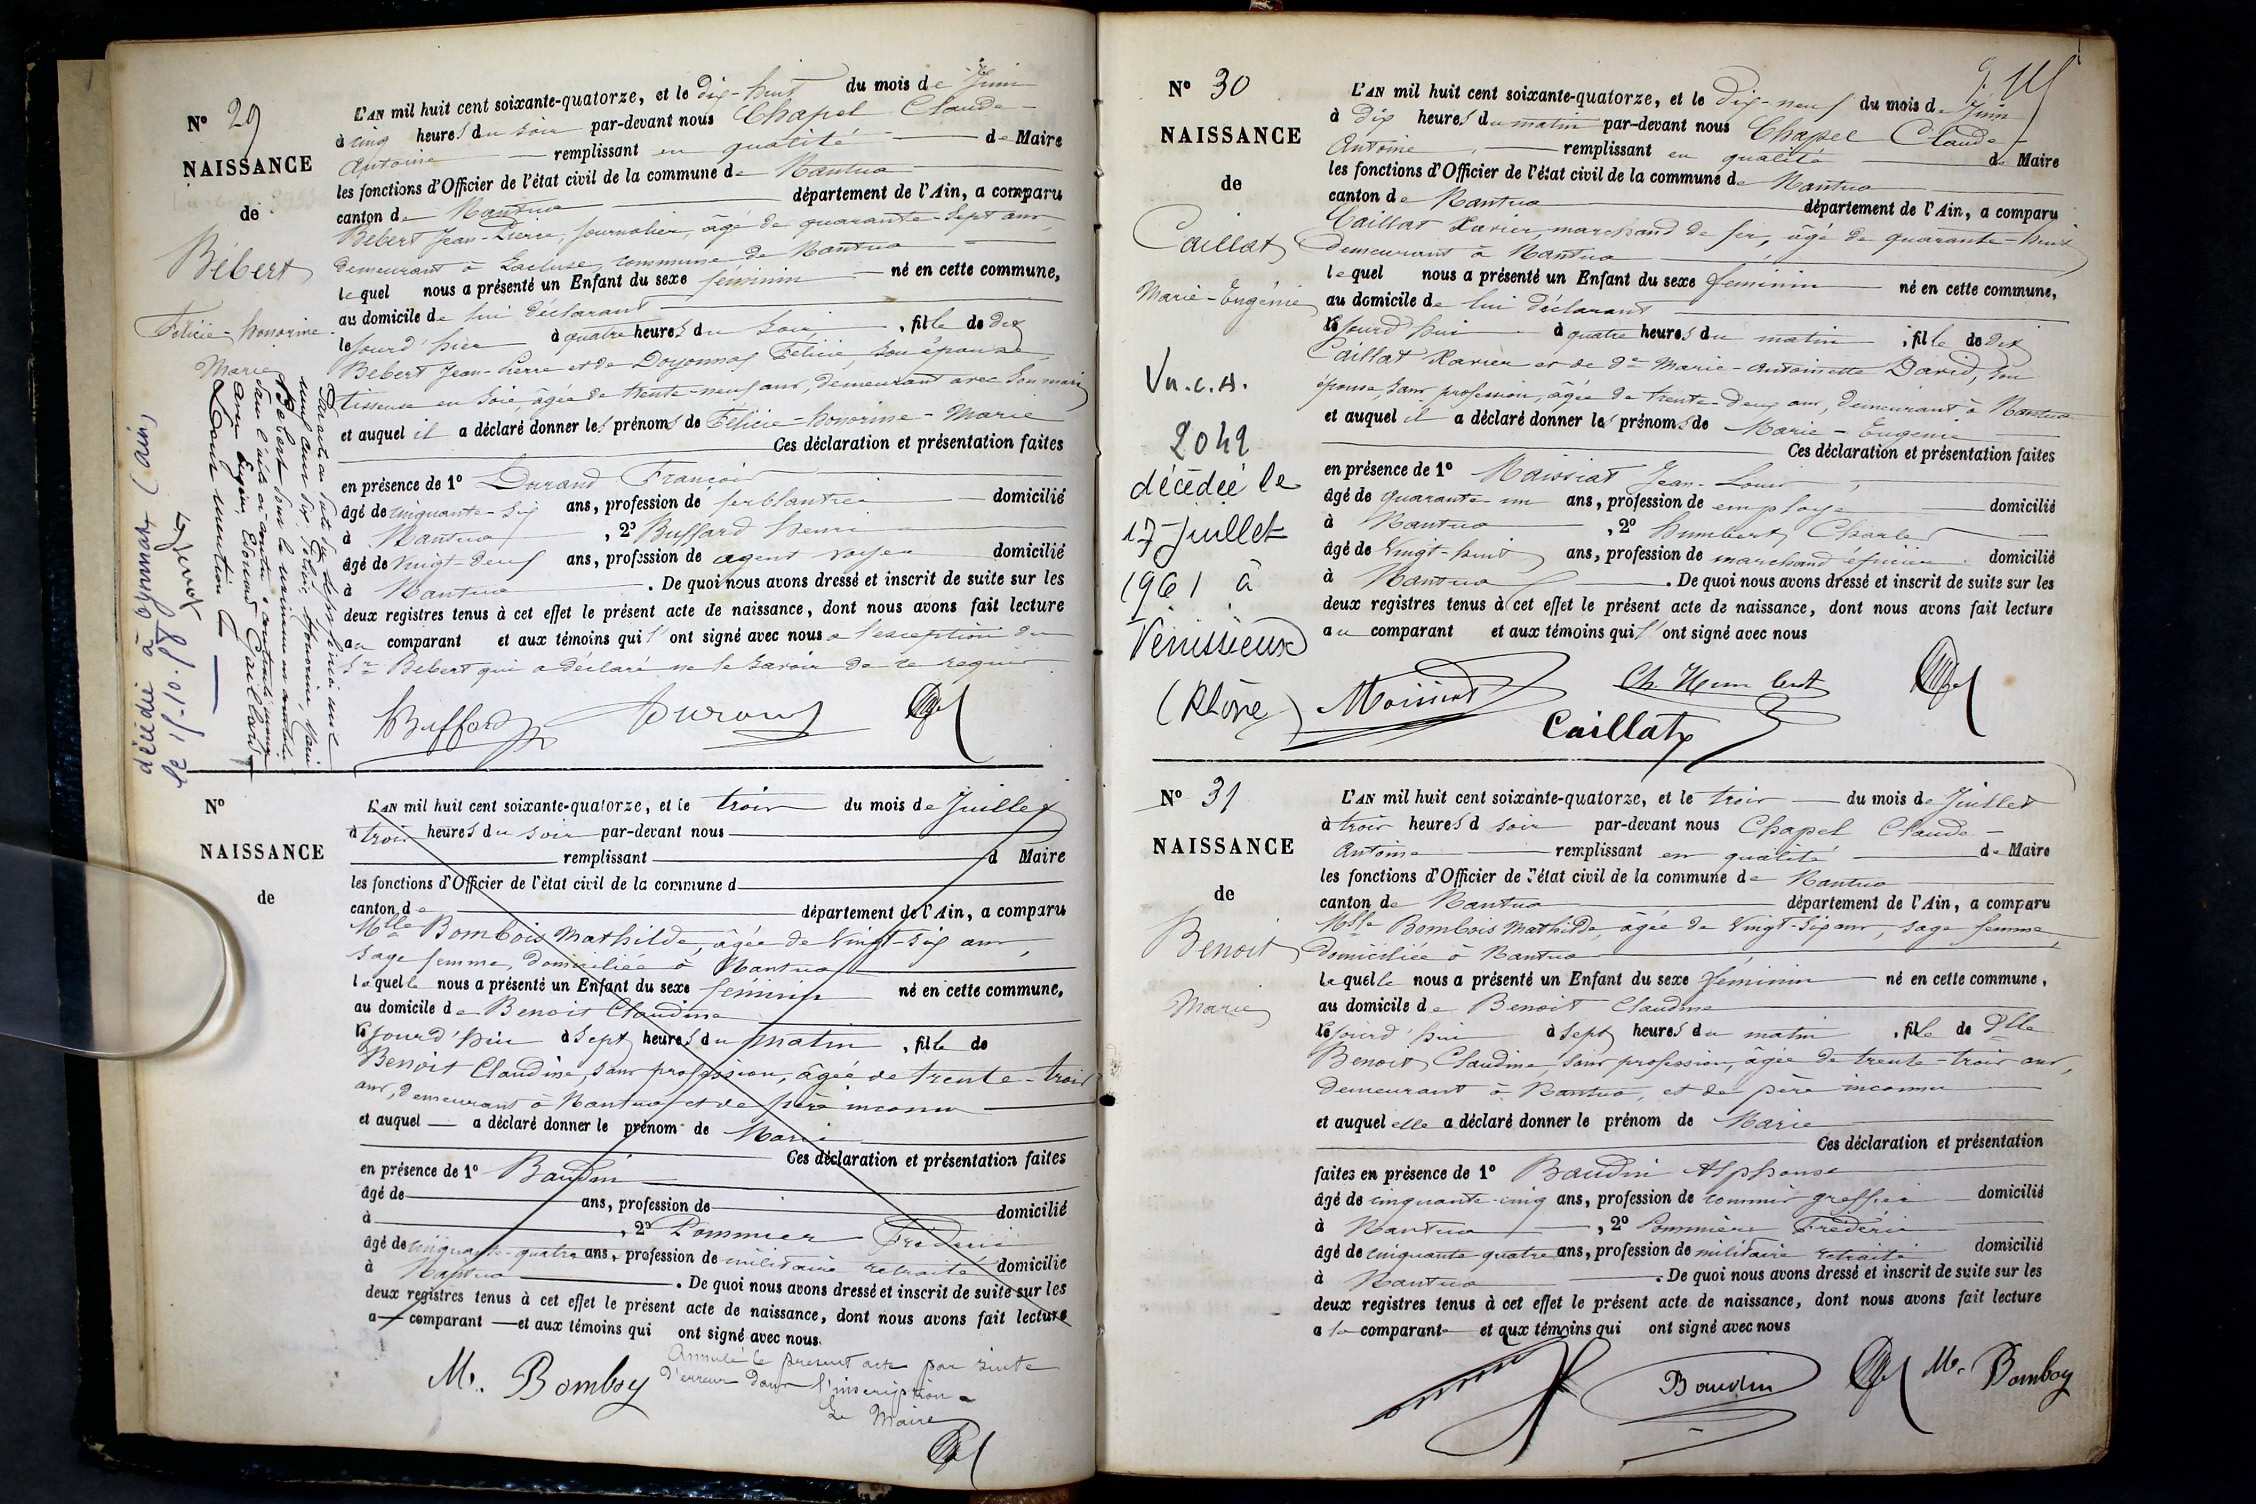 N° 29
NAISSANCE
de
Bébert
Félicie-honorine
Marie
L'AN mil huit cent soixante-quatorze, et le dix-huit du mois de Juin
à cinq heures du soir par-devant nous Chapel Claude-
Antoine remplissant en qualité de Maire
les fonctions d'Officier de l'état civil de la commune de Nantua
canton de Nantua département de l'Ain, a comparu
Bébert Jean-Pierre, journalier, âgé de quarante-sept ans,
demeurant à Lacluse, commune de Nantua
lequel nous a présenté un Enfant du sexe féminin né en cette commune,
au domicile de lui déclarant
lejourd'hui à quatre heures du soir, fille de dit
Bébert Jean-Pierre et de Doyonnas Félicie, son épouse,
tisseuse en soie, âgée de trente-neuf ans, demeurant avec son mari
et auquel il a déclaré donner les prénoms de Félicie-honorine-Marie
Ces déclaration et présentation faites
en présence de 1° Durand François
âgé de cinquante-six ans, profession de ferblantier domicilié
à Nantua, 2° Buffard henri
âgé de vingt-neuf ans, profession de agent voyer domicilié
à Nantua. De quoi nous avons dressé et inscrit de suite sur les
deux registres tenus à cet effet le présent acte de naissance, dont nous avons fait lecture
au comparant et aux témoins qui l'ont signé avec nous à l'exception du
Sr Bébert qui a déclaré ne le savoir de ce requis
Buffard Durand
décédée à Oyonnax (Ain)
le 15-10-58
Félicie, Honorine, Marie
Bébert
avec Eugène, Edmond Gaillard
Dont mention
N°
NAISSANCE
de
L'AN mil huit cent soixante-quatorze, et le trois du mois de Juillet
à trois heures du soir par-devant nous
remplissant d Maire
les fonctions d'Officier de l'état civil de la commune d
canton de département de l'Ain, a comparu
Mlle Bombois Mathilde, âgée de vingt-six ans,
sage femme, domiciliée à Nantua
laquelle nous a présenté un Enfant du sexe féminin né en cette commune,
au domicile de Benoit Claudine
lejourd'hui à sept heures du matin, fille de
Benoit Claudine, sans profession, âgée de trente-trois
ans, demeurant à Nantua et de père inconnu
et auquel a déclaré donner le prénom de Marie
Ces déclaration et présentation faites
en présence de 1° Baudin
âgé de ans, profession de domicilié
à, 2° Pommier Frédéric
âgé de cinquante-quatre ans, profession de militaire retraité domicilié
à Nantua. De quoi nous avons dressé et inscrit de suite sur les
deux registres tenus à cet effet le présent acte de naissance, dont nous avons fait lecture
a comparant et aux témoins qui ont signé avec nous.
Annulé le présent acte par suite
d'erreur dans l'inscription.
Le Maire
M. Bomboy
N° 30
NAISSANCE
de
Caillat
Marie-Eugénie
Vu.c.A.
2042
décédée le
17 Juillet
1961 à
Vénissieux
(Rhône)
L'AN mil huit cent soixante-quatorze, et le dix-neuf du mois de Juin
à dix heures du matin par-devant nous Chapel Claude-
Antoine, remplissant en qualité de Maire
les fonctions d'Officier de l'état civil de la commune de Nantua
canton de Nantua département de l'Ain, a comparu
Caillat Xavier, marchand de fer, âgé de quarante-huit
demeurant à Nantua
lequel nous a présenté un Enfant du sexe féminin né en cette commune,
au domicile de lui déclarant
lejourd'hui à quatre heures du matin, fille de dit
Caillat Xavier et de de Marie-Antoinette David, son
épouse, sans profession, âgée de trente-deux ans, demeurant à Nantua
et auquel il a déclaré donner les prénoms de Marie-Eugénie
Ces déclaration et présentation faites
en présence de 1° Maissiat Jean-Louis,
âgé de quarante-un ans, profession de employé domicilié
à Nantua, 2° humbert Charles
âgé de vingt-huit ans, profession de marchand épicier domicilié
à Nantua. De quoi nous avons dressé et inscrit de suite sur les
deux registres tenus à cet effet le présent acte de naissance, dont nous avons fait lecture
au comparant et aux témoins qui l'ont signé avec nous
Maissiat Ch. Humbert
Caillat
N° 31
NAISSANCE
de
Benoit
Marie
L'AN mil huit cent soixante-quatorze, et le trois du mois de Juillet
à trois heures d soir par-devant nous Chapel Claude-
Antoine remplissant en qualité de Maire
les fonctions d'Officier de l'état civil de la commune de Nantua
canton de Nantua département de l'Ain, a comparu
Mlle Bombois Mathilde, âgée de vingt-six ans, sage femme,
domiciliée à Nantua
laquelle nous a présenté un Enfant du sexe féminin né en cette commune,
au domicile de Benoit Claudine
lejourd'hui à sept heures du matin, fille de Dlle
Benoit Claudine, sans profession, âgée de trente-trois ans,
demeurant à Nantua, et de père inconnu
et auquel elle a déclaré donner le prénom de Marie
Ces déclaration et présentation
faites en présence de 1° Baudin Alphonse
âgé de cinquante-cinq ans, profession de commis greffier domicilié
à Nantua, 2° Pommier Frédéric
âgé de cinquante quatre ans, profession de militaire retraité domicilié
à Nantua. De quoi nous avons dressé et inscrit de suite sur les
deux registres tenus à cet effet le présent acte de naissance, dont nous avons fait lecture
a la comparante et aux témoins qui ont signé avec nous
Baudin M. Bomboy